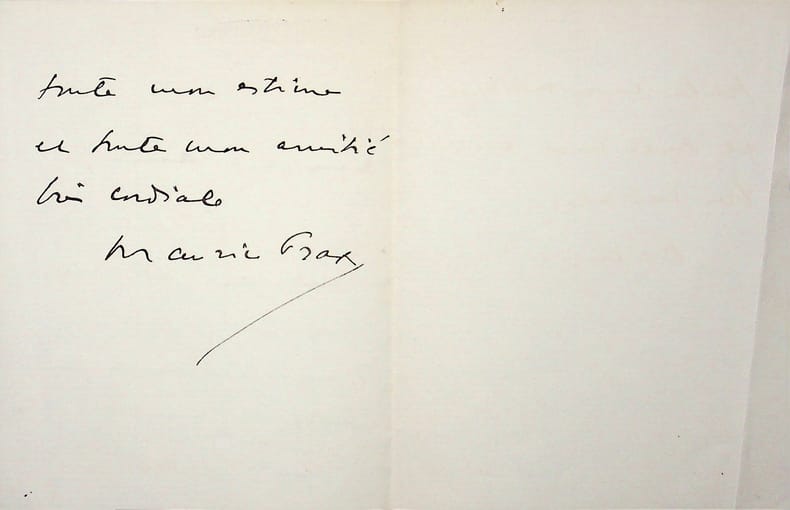 toute mon estime
et toute mon amitié
très cordiale
Maurice Prax